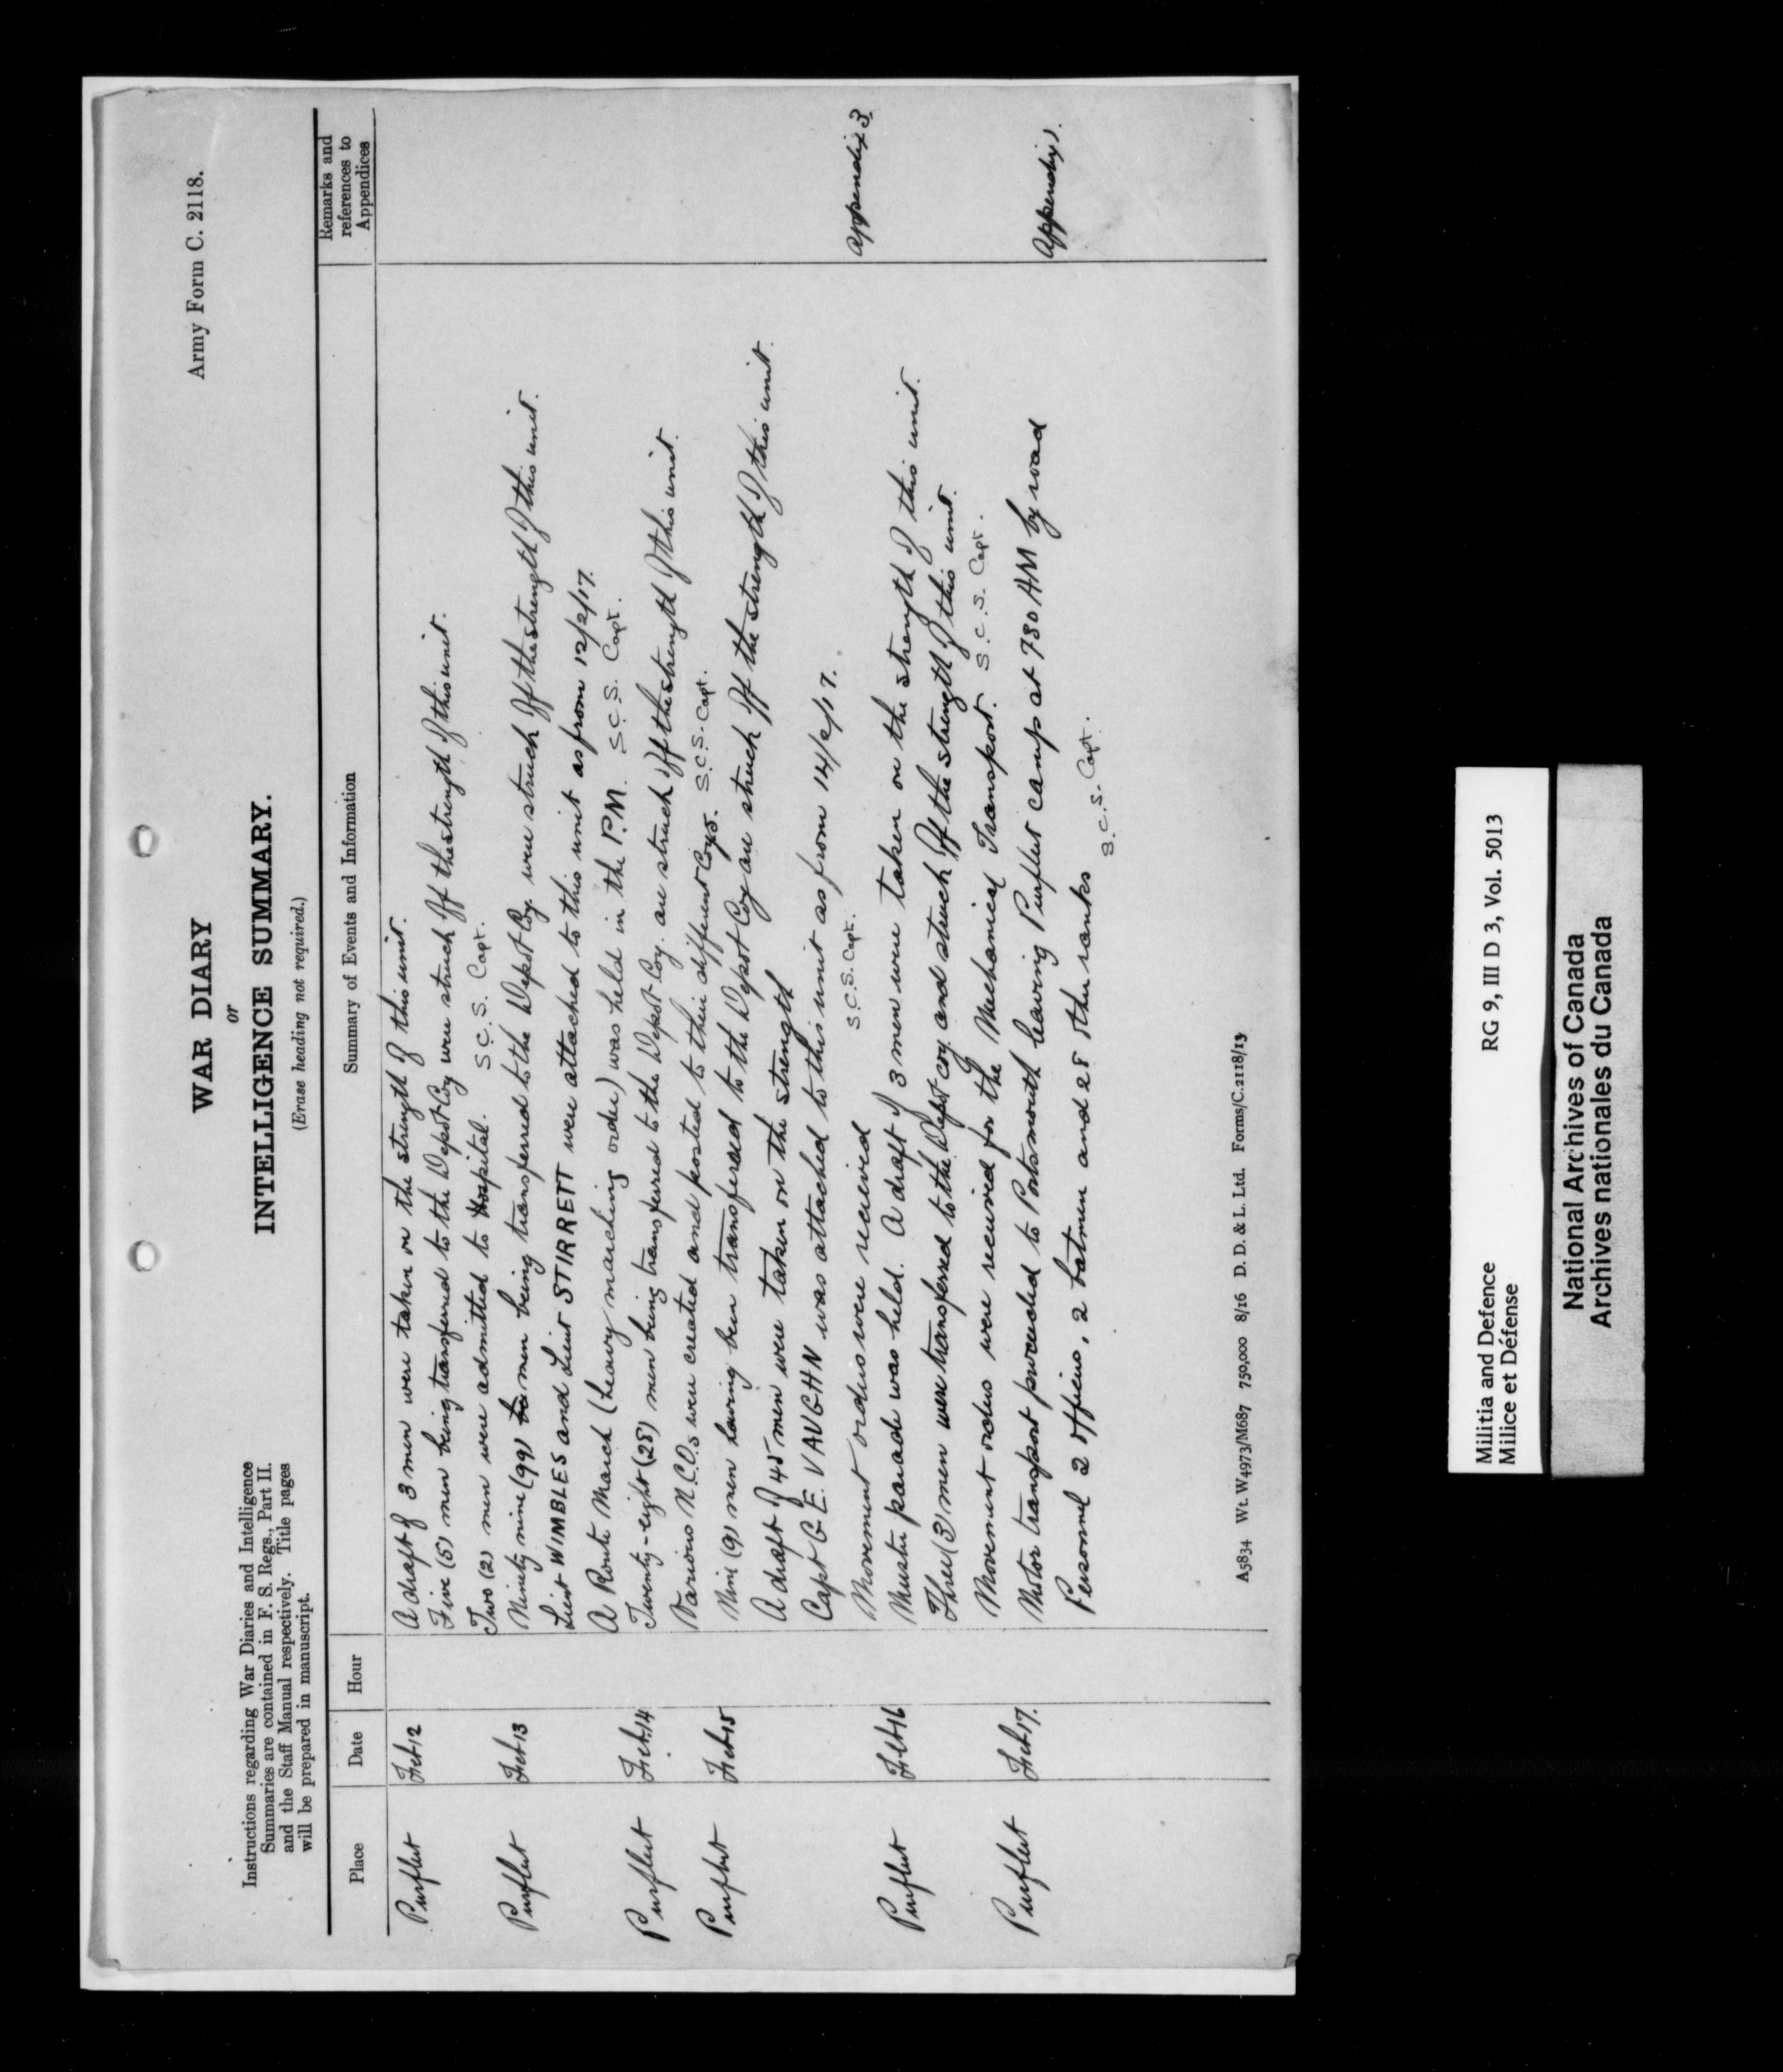 Army Form C. 2118.
WAR DIARY
or
INTELLIGENCE SUMMARY.
(Erase heading not required.)
Instructions regarding War Diaries and Intelligence
Summaries are contained in F. S. Regs., Part II.
and the Staff Manual respectively. Title pages
will be prepared in manuscript.
Place Date Hour Summary of Events and Information Remarks and references to Appendices
Purfleet Feb 12 A draft of 3 men were taken on the strength of this unit.
Five (5) men being transferred to the Depot Coy were struck off the strength of this unit.
Two (2) men were admitted to Hospital. S.C.S. Capt.
Purfleet Feb 13 Ninety nine (99) men being transferred to the Depot Coy. were struck off the strength of this unit.
Lieut WIMBLES and Lieut STIRRETT were attached to this unit as from 12/2/17.
A Route March (heavy marching order) was held in the P.M. S.C.S. Capt.
Purfleet Feb. 14 Twenty-eight (28) men being transferred to the Depot Coy. are struck off the strength of this unit.
Various N.C.O.s were created and posted to their different Coys. S.C.S. Capt.
Purfleet Feb 15 Nine (9) men having been transfered to the Depot Coy are struck off the strength of this unit.
A draft of 45 men were taken on the strength
Capt G.E. VAUGHN was attached to this unit as from 14/2/17.
S.C.S. Capt.
Movement orders were received Appendix 3
Purfleet Feb 16 Muster parade was held. A draft of 3 men were taken on the strength of this unit.
Three (3) men were transferred to the Depot coy. and struck off the strength of this unit.
Movement orders were received for the Mechanical Transport. S.C.S. Capt.
Purfleet Feb 17. Motor transport proceeded to Portsmouth leaving Purfleet camp at 730 AM by road Appendix 1.
Personnel 2 officers, 2 batmen and 28 other ranks
S.C.S. Capt.
A5834 Wt. W4973/M687 750,000 8/16 D. D. & L. Ltd. Forms/C.2118/13
Militia and Defence RG 9, III D 3, Vol. 5013
Milice et Défense
National Archives of Canada
Archives nationales du Canada